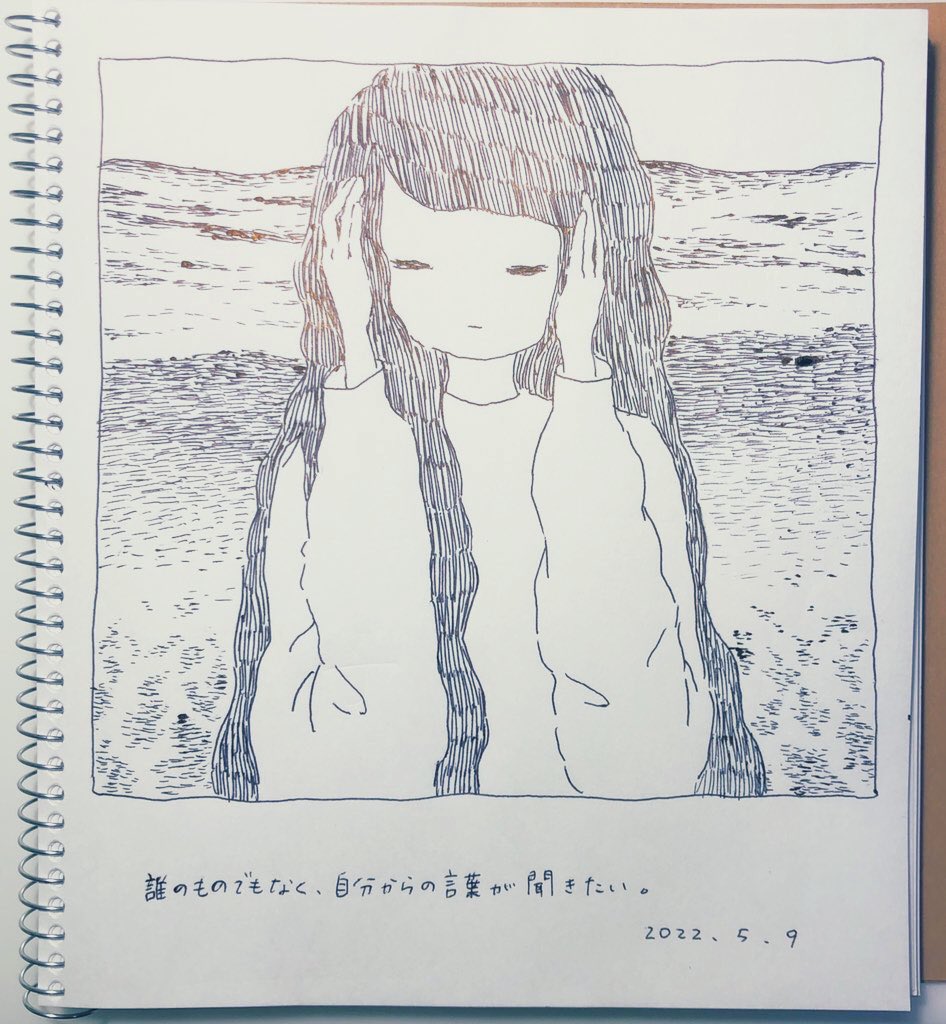 誰のものでもなく、自分からの言葉が聞きたい。
2022.5.9